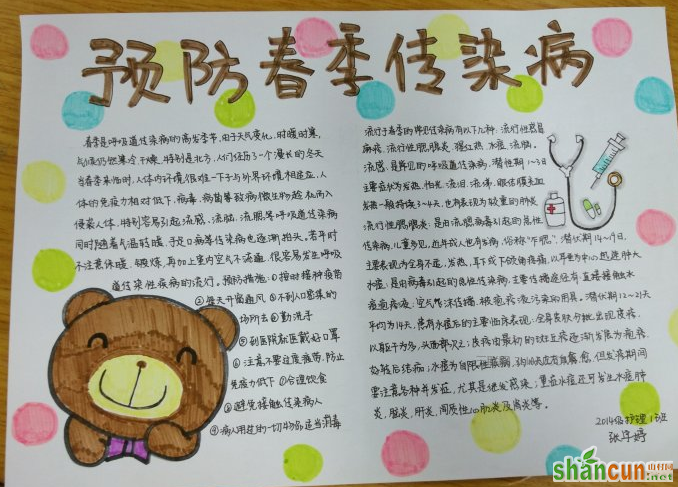 预防春季传染病
春季是呼吸道传染病的高发季节,由于天气变化,时暖时寒,
气候仍然寒冷、干燥,特别是北方,人们经历了一个漫长的冬天
当春季来临时,人体内环境很难一下子与外界环境相适应,人
体的免疫力相对低下,病毒、病菌等致病微生物趁机而入
侵袭人体,特别容易引起流感、流脑、流腮等呼吸道传染病
同时随着气温转暖,手足口病等传染病也逐渐抬头。若平时
不注意保暖、锻炼,再加上室内空气不流通,很容易发生呼吸
道传染性疾病的流行。预防措施:①按时接种疫苗
②每天开窗通风 ③不到人口密集的
场所去 ④勤洗手
⑤到医院就医戴好口罩
⑥注意不要过度疲劳,防止
免疫力低下 ⑦合理饮食
⑧避免接触传染病人
⑨病人用过的一切物品适当消毒
流行于春季的常见传染病有以下几种:流行性感冒
麻疹、流行性腮腺炎、猩红热、水痘、流脑。
流感:是常见的呼吸道传染病,潜伏期1~3日
主要症状为发热、怕光、流泪、流涕、眼结膜充血
发热一般持续3~4天,也有表现为较重的肺炎
流行性腮腺炎:是由流腮病毒引起的急性
传染病,儿童多见,也年成人也有发病,俗称"乍腮"。潜伏期14~19日,
主要表现为全身不适,发热,耳下或下颌角疼痛,以耳垂为中心迅速肿大
水痘:是由病毒引起的良性传染病,主要传播途径有:直接接触水
痘疱疹液;空气飞沫传播;被疱疹液污染的用具。潜伏期12~21天
平均为14天,患有水痘后的主要临床表现:全身皮肤分批出现皮疹,
以躯干为多,头面部次之;皮疹由最初的斑丘疹逐渐发展为疱疹、
好转后结痂;水痘为自限性疾病,约10天左右自愈,但发病期间
要注意各种并发症,尤其是继发感染;重症水痘还可发生水痘肺
炎、脑炎、肝炎、间质性心肌炎及肾炎等。
2014级护理1班
shancun
山村网
.net